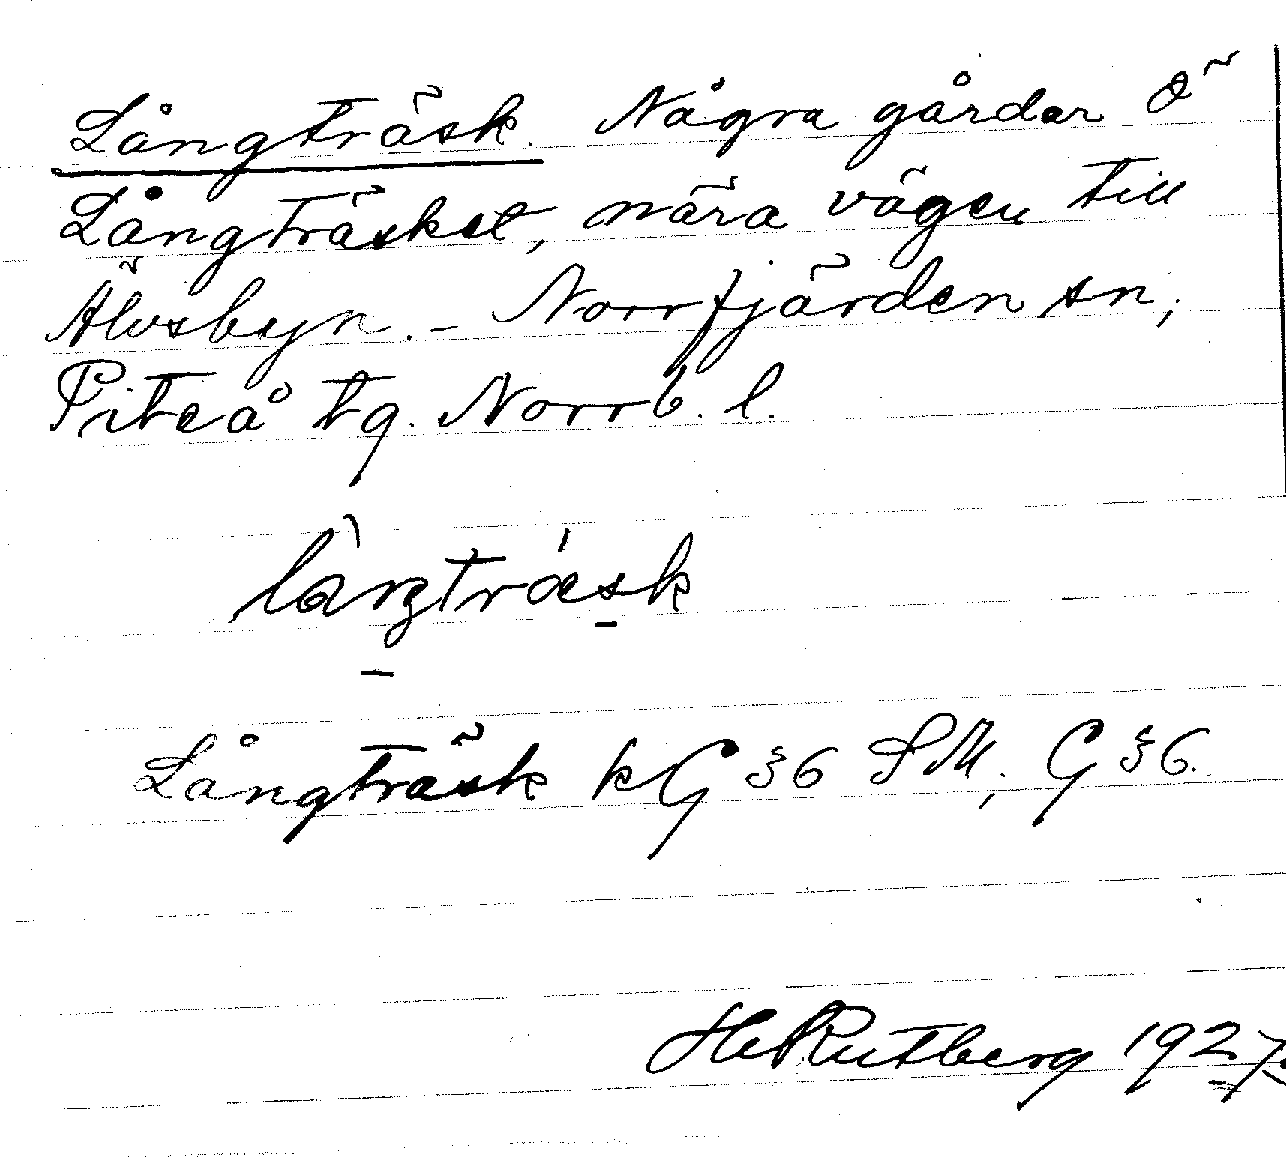 Långträsk. Några gårdar Ö
Långträsket, nära vägen till
Älvsbyn. – Norrfjärden sn,
Piteå tg. Norrb. l.
Långträsk kG §6 SM, G §6.
H Rutberg 1927.